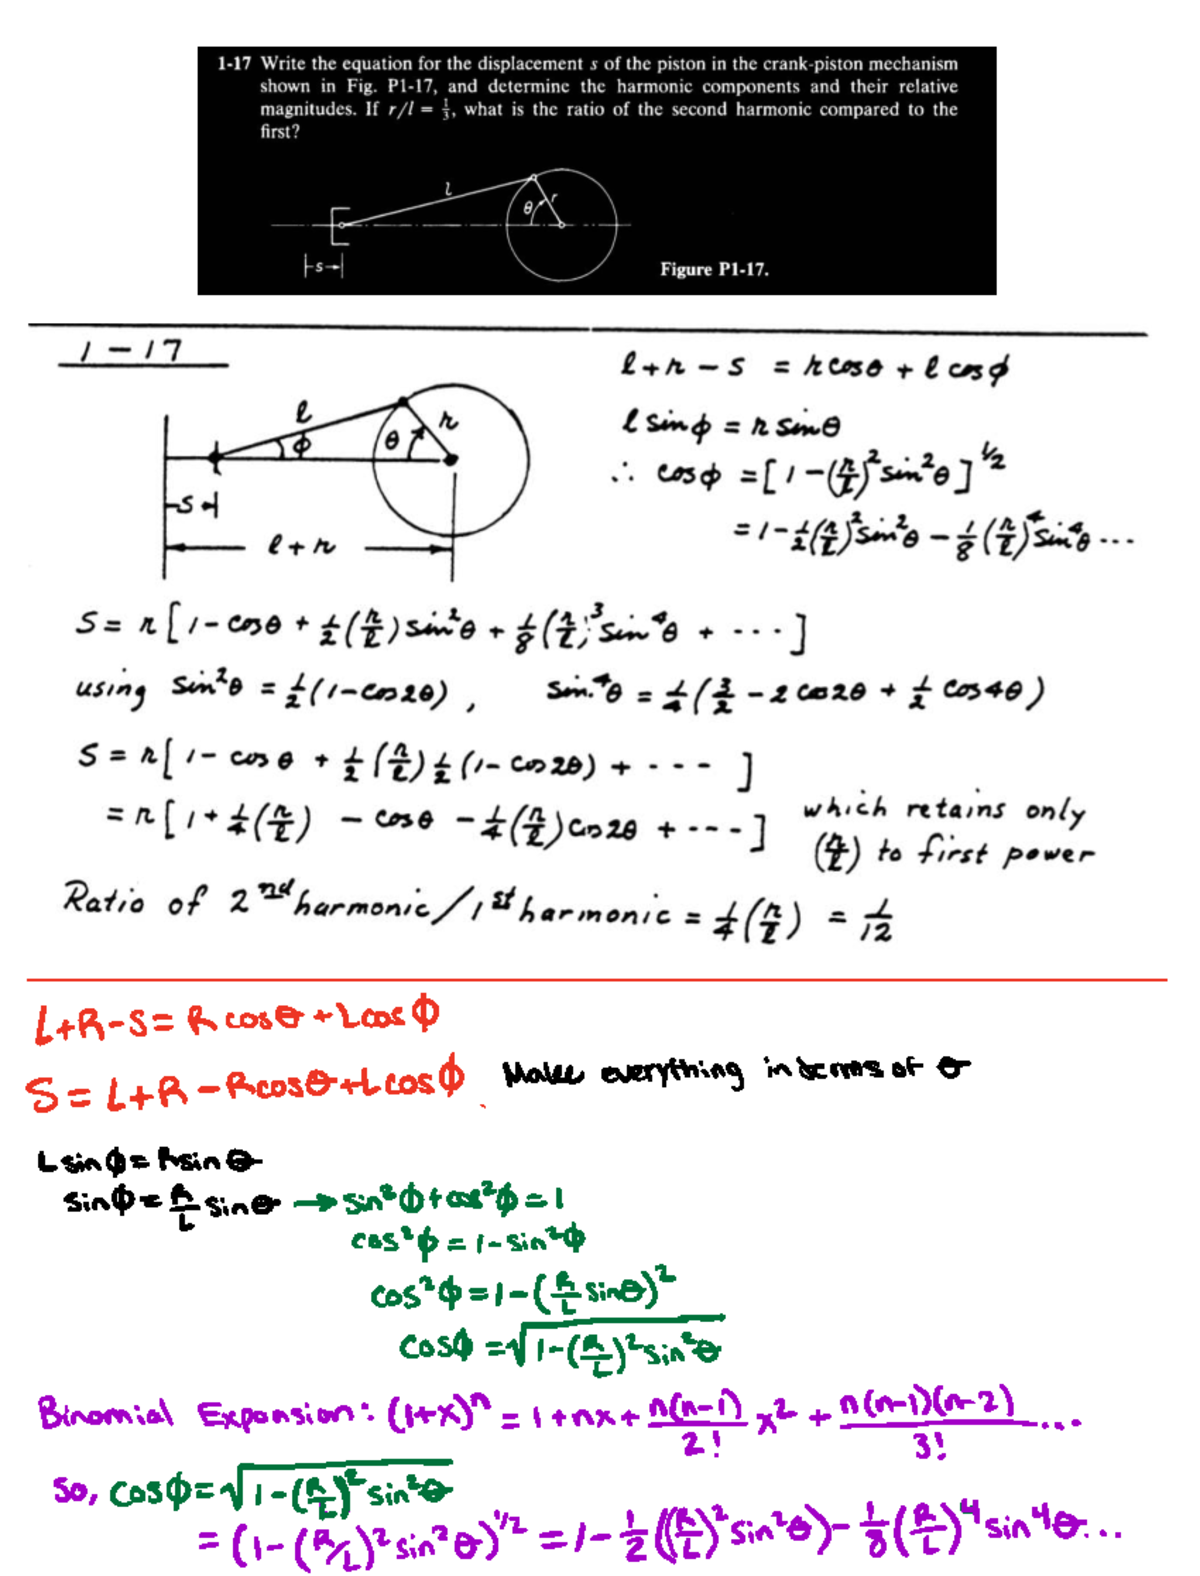 1-17 Write the equation for the displacement s of the piston in the crank-piston mechanism
shown in Fig. P1-17, and determine the harmonic components and their relative
magnitudes. If r/l = 1/3, what is the ratio of the second harmonic compared to the
first?
l
θ r
s
Figure P1-17.
1-17
l + r - s = r cosθ + l cosϕ
l r
ϕ θ
l sinϕ = r sinθ
∴ cosϕ = [1 - (r/l)² sin²θ]^1/2
s
l + r
= 1 - 1/2(r/l)² sin²θ - 1/8(r/l)⁴ sin⁴θ ...
S = r[1 - cosθ + 1/2(r/l) sin²θ + 1/8(r/l)³ sin⁴θ + ....]
using sin²θ = 1/2(1 - cos2θ), sin⁴θ = 1/4(3/2 - 2 cos2θ + 1/2 cos4θ)
S = r[1 - cosθ + 1/2(r/l)1/2(1 - cos2θ) + ....]
= r[1 + 1/4(r/l) - cosθ - 1/4(r/l) cos2θ + ....] which retains only
(r/l) to first power
Ratio of 2nd harmonic/1st harmonic = 1/4(r/l) = 1/12
L+R-S = R cosθ + L cosϕ
S = L+R - Rcosθ + L cosϕ Make everything in terms of θ
L sinϕ = R sinθ
sinϕ = R/L sinθ → sin²ϕ + cos²ϕ = 1
cos²ϕ = 1 - sin²ϕ
cos²ϕ = 1 - (R/L sinθ)²
cosϕ = √1 - (R/L)² sin²θ
Binomial Expansion: (1+x)ⁿ = 1 + nx + n(n-1)/2! x² + n(n-1)(n-2)/3! ...
So, cosϕ = √1 - (R/L)² sin²θ
= (1 - (R/L)² sin²θ)^1/2 = 1 - 1/2((R/L)² sin²θ) - 1/8(R/L)⁴ sin⁴θ...